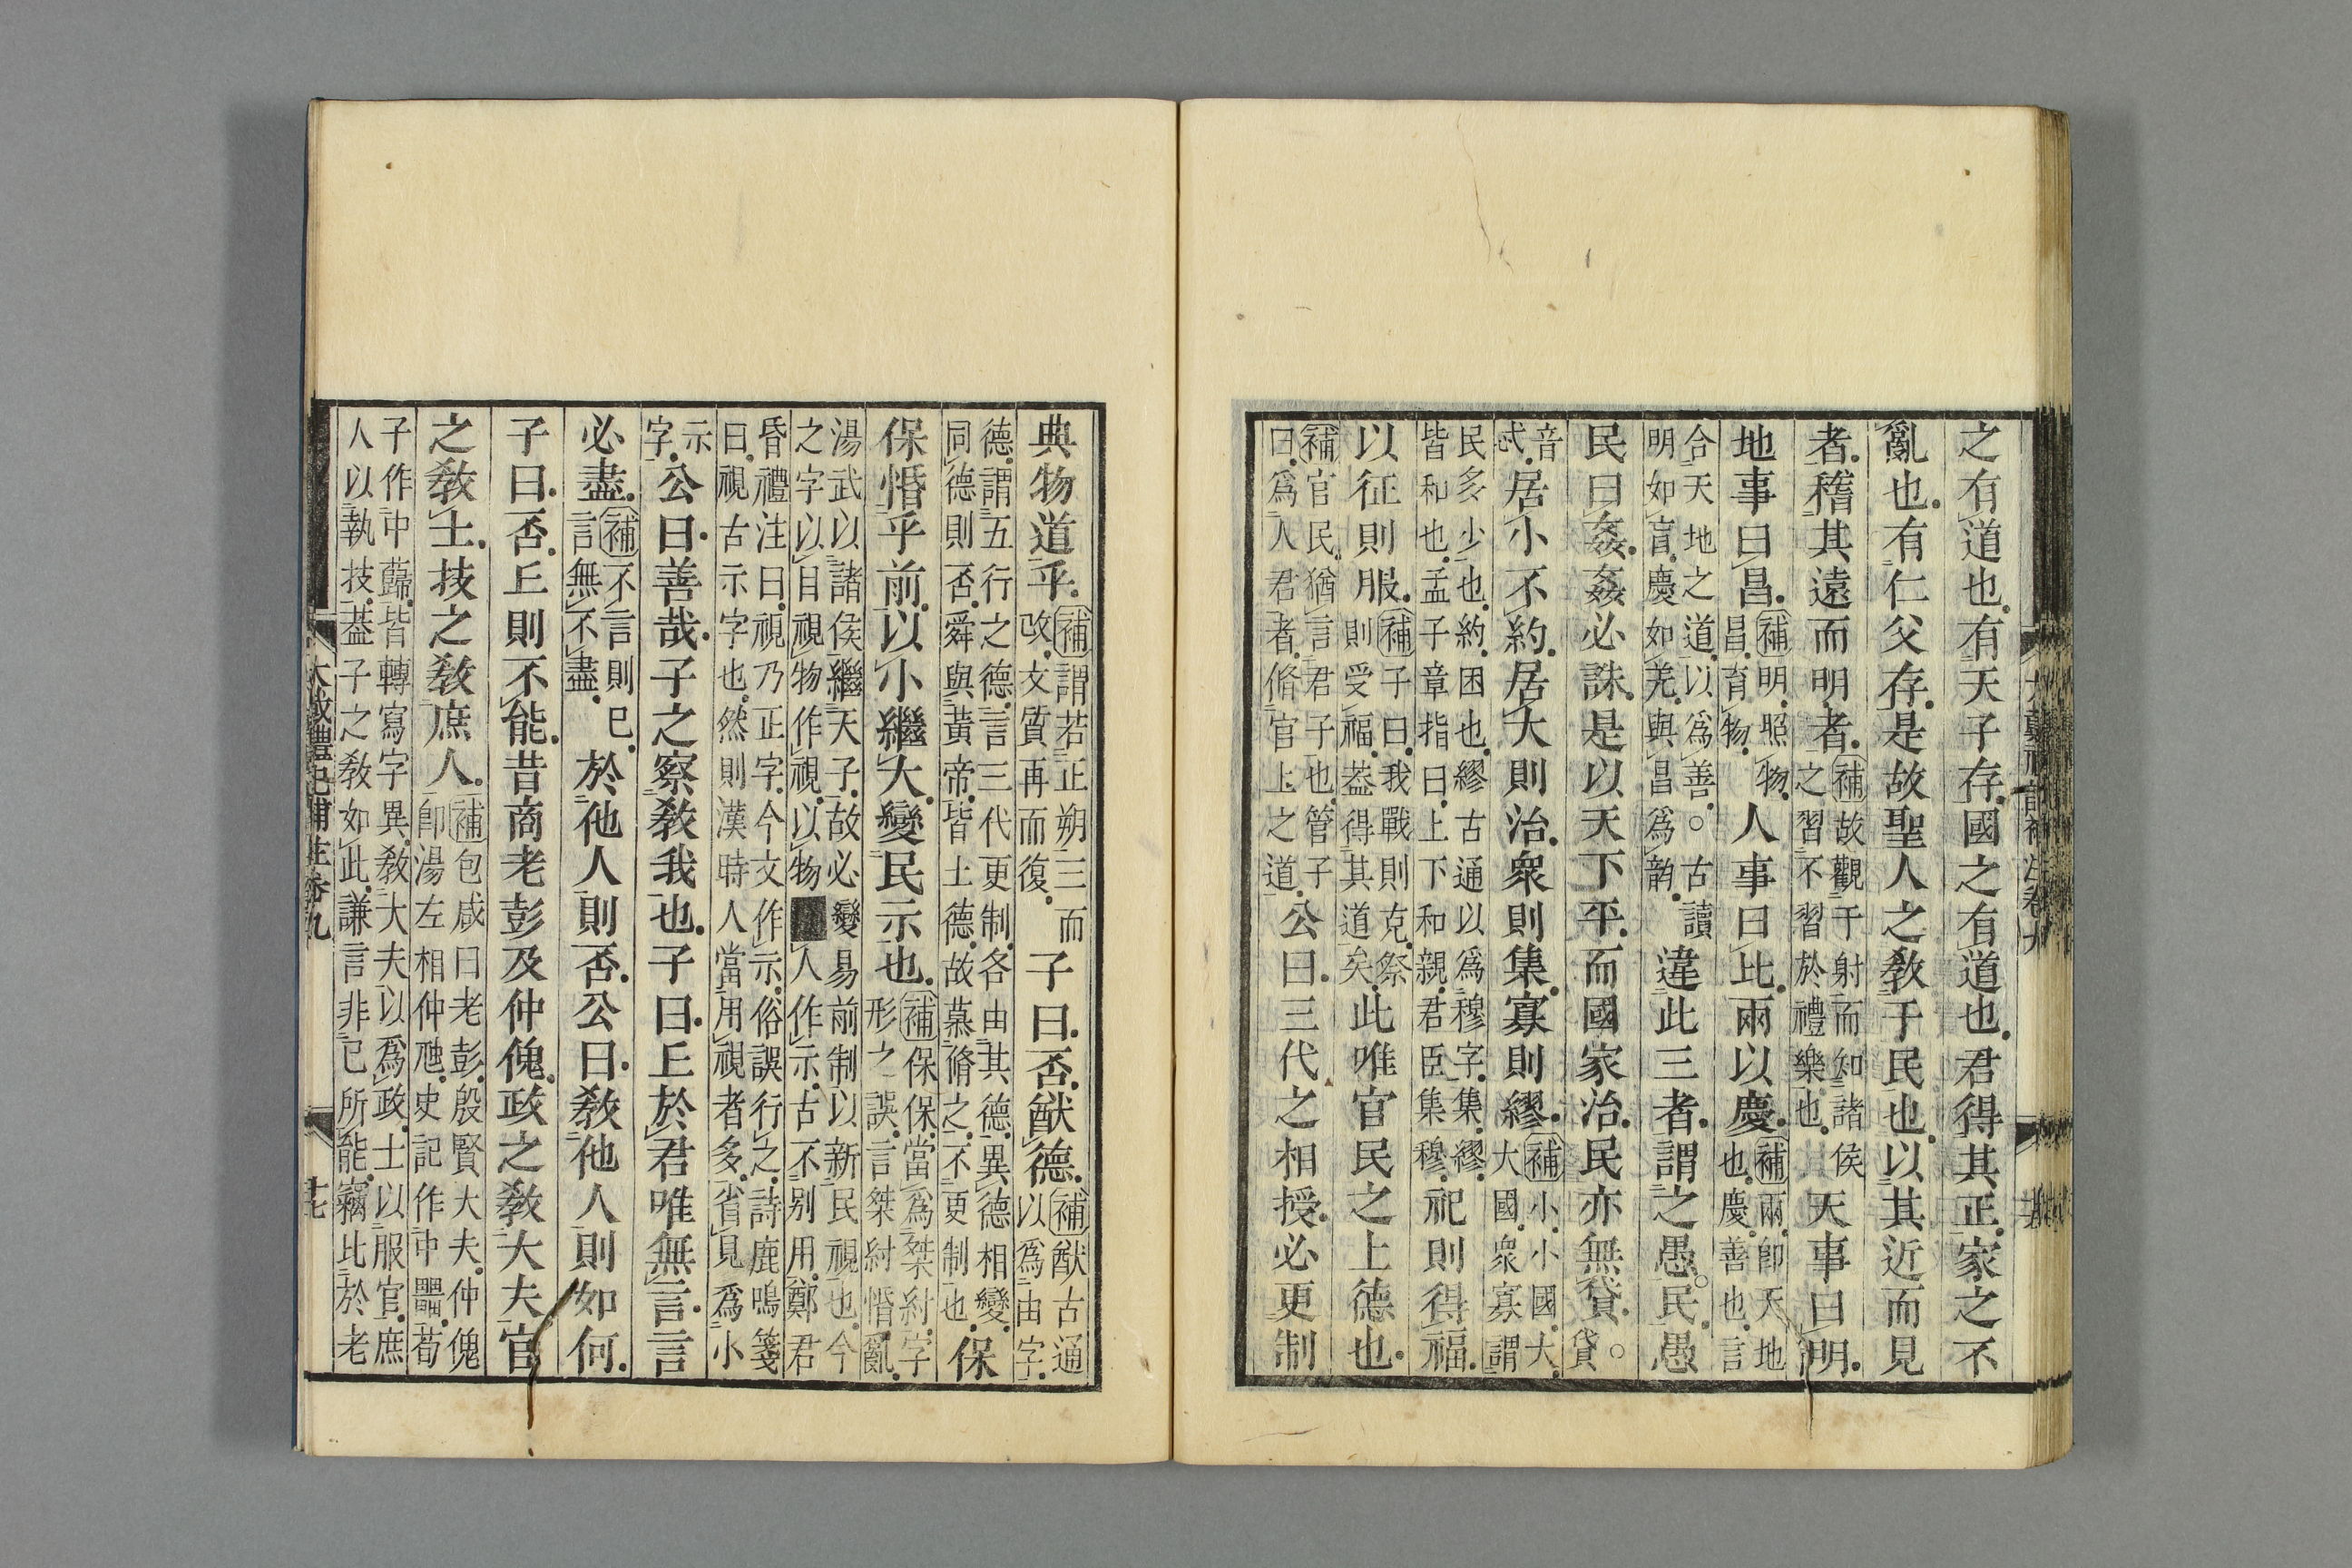 之有道也有天子存國之有道也君得其正家之不
亂也有仁父存是故聖人之教于民也以其近而見
者稽其遠而明者補故觀于射而知諸侯之習不習於禮樂也天事曰明
地事曰昌補明照物昌育物人事曰比兩以慶補兩即天地也慶善也言
合天地之道以爲善○古讀明如盲慶如羌與昌爲韵違此三者謂之愚民愚
民曰姦姦必誅是以天下平而國家治民亦無貸○貸
音忒居小不約居大則治衆則集寡則繆補小小國大大國衆寡謂
民多少也約困也繆古通以爲穆字集繆皆和也孟子章指曰上下和親君臣集穆祀則得福
以征則服補子曰我戰則克祭則受福葢得其道矣此唯官民之上德也
補官民猶言君子也管子曰爲人君者脩官上之道公曰三代之相授必更制
典物道乎補謂若正朔三而改文質再而復子曰否猷德補猷古通以爲由字
德謂五行之德言三代更制各由其德異德相變同德則否舜與黃帝皆土德故慕脩之不更制也保
保惛乎前以小繼大變民示也補保保當爲桀紂字形之誤言桀紂惛亂
湯武以諸侯繼天子故必變易前制以新民視也今之字以目視物作視以物人作示古不别用鄭君
昏禮注曰視乃正字今文作示俗誤行之詩鹿鳴箋曰視古示字也然則漢時人當用視者多省見爲小
示字公曰善哉子之察教我也子曰丘於君唯無言言
必盡補不言則已言無不盡於他人則否公曰教他人則如何
子曰否丘則不能昔商老彭及仲傀政之教大夫官
之教士技之教庶人補包咸曰老彭殷賢大夫仲傀即湯左相仲虺史記作中𤳳荀
子作中蘬皆轉寫字異教大夫以爲政士以服官庶人以執技葢子之教如此謙言非已所能竊比於老
大戴禮記補注卷九